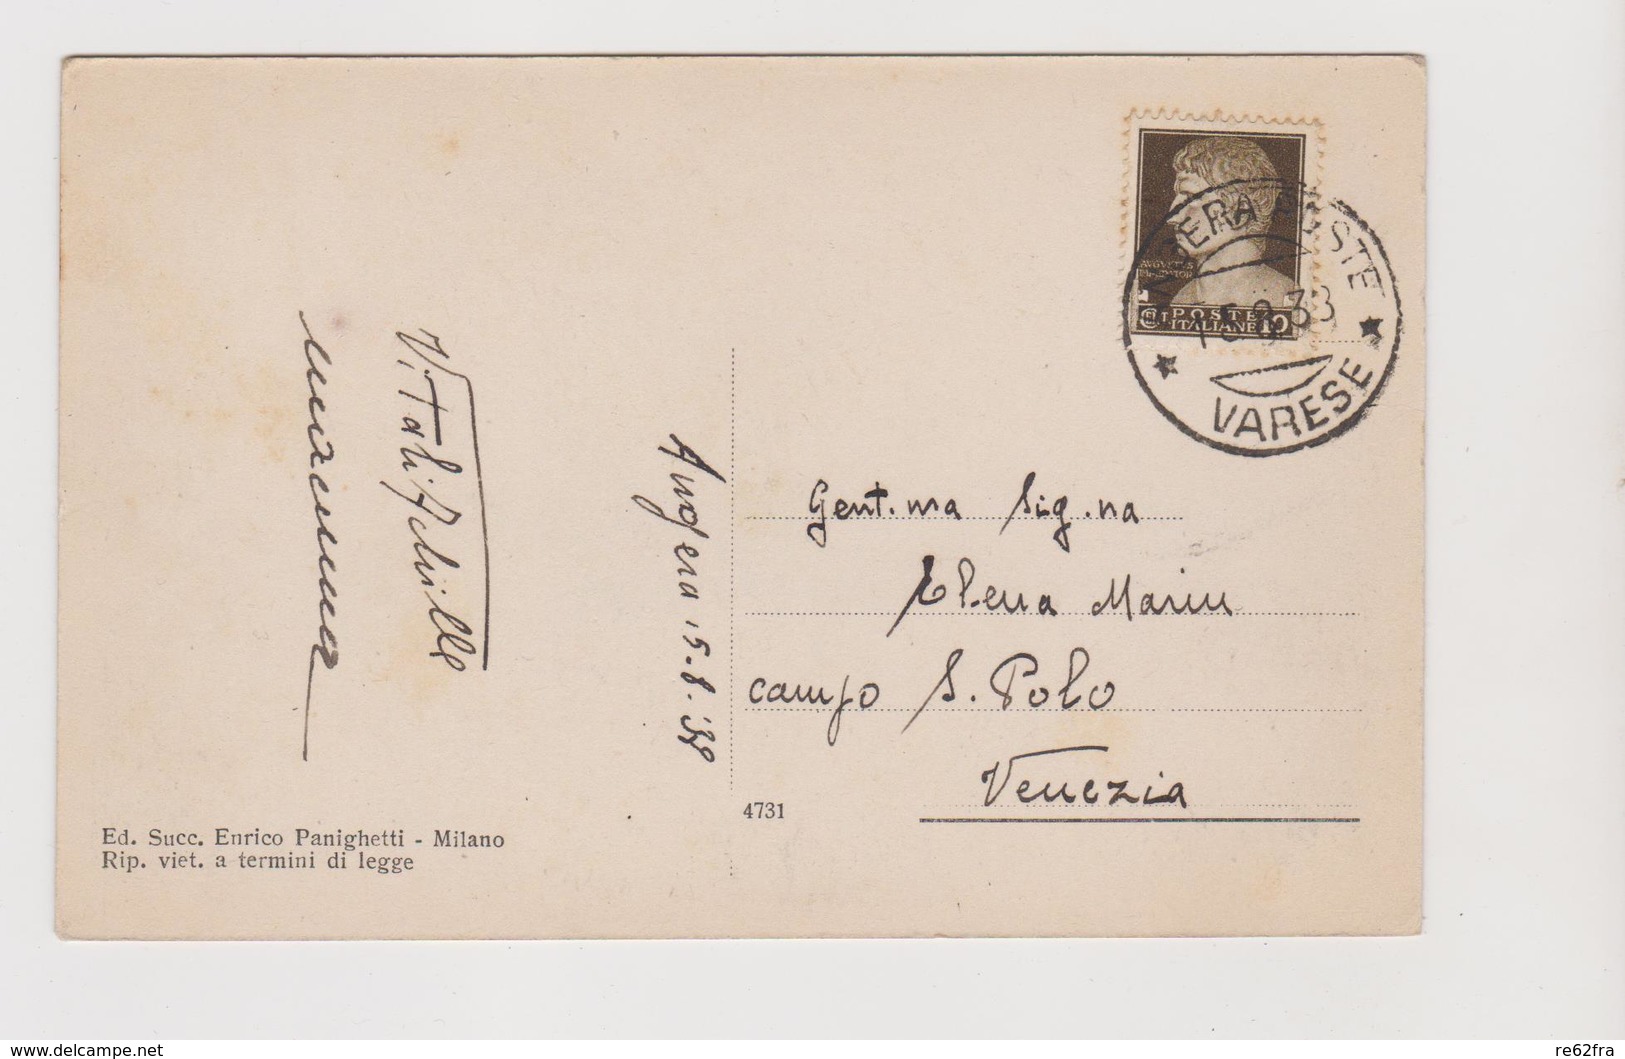 ANGERA POSTE
15.8.38
VARESE
AVGVSTVS
IMPERATOR
POSTE
ITALIANE
10
Vitali Achille
Angera 15.8.'38
Gent.ma Sig.na
Elena Marin
campo S. Polo
Venezia
4731
Ed. Succ. Enrico Panighetti - Milano
Rip. viet. a termini di legge
www.delcampe.net
re62fra